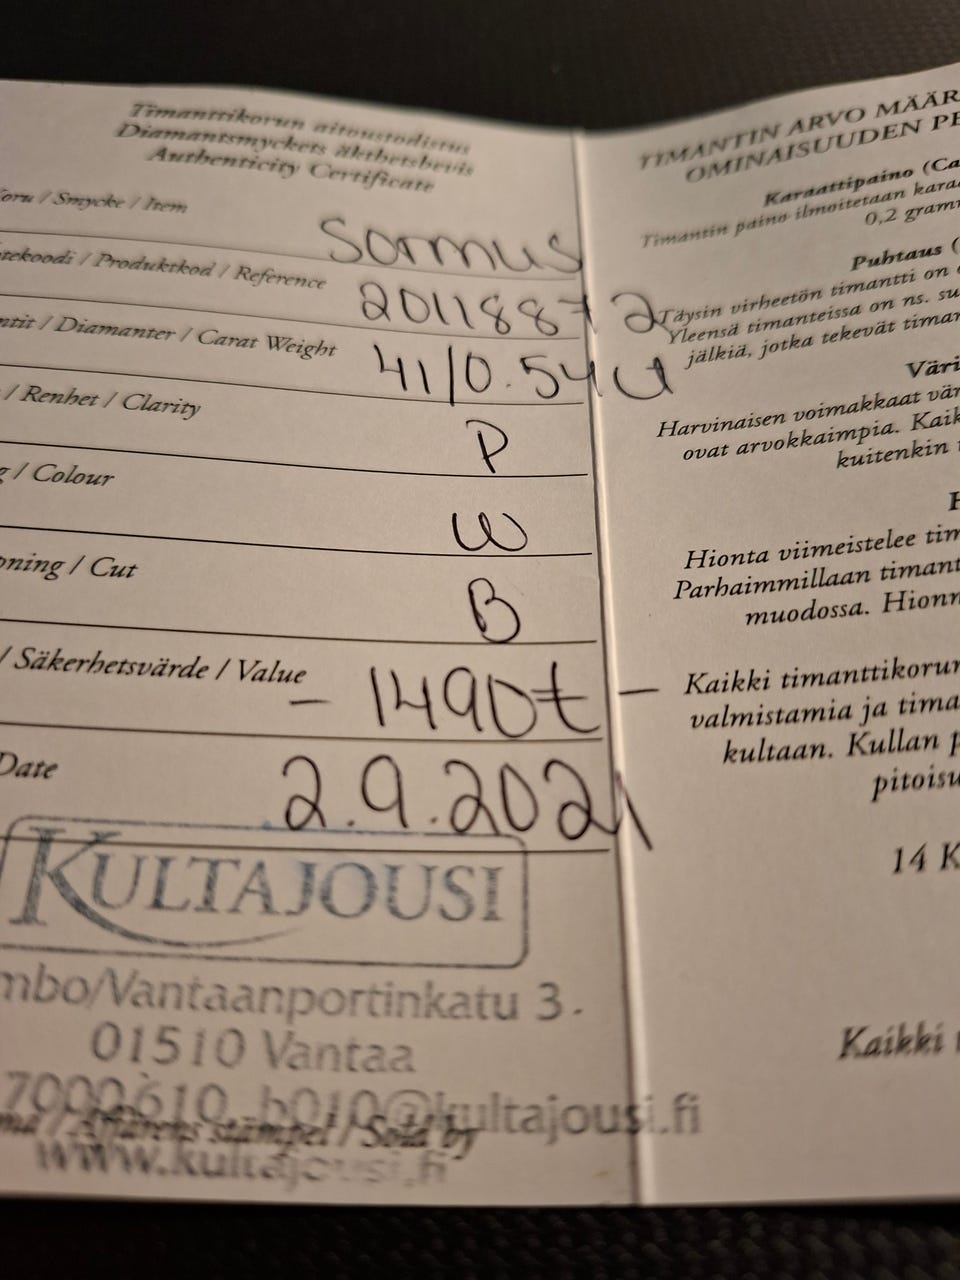 Timanttikorun aitoustodistus
Diamantsmyckets äkthetsbevis
Authenticity Certificate
/ Smycke / Item
Sormus
/ Produktkod / Reference
/ Diamanter / Carat Weight
41/0.54
/ Renhet / Clarity
P
/ Colour
W
/ Cut
B
/ Säkerhetsvärde / Value
- 1490€ -
Date
2.9.2021
KULTAJOUSI
mbo/Vantaanportinkatu 3.
01510 Vantaa
7000610, b010@kultajousi.fi
/ Affärens stämpel / Sold by
www.kultajousi.fi
TIMANTIN ARVO MÄÄR
OMINAISUUDEN PE
Karaattipaino (Ca
Timantin paino ilmoitetaan karaa
0,2 gram
Puhtaus (
Täysin virheetön timantti on
Yleensä timanteissa on ns. su
jälkiä, jotka tekevät timan
Väri
Harvinaisen voimakkaat vär
ovat arvokkaimpia. Kaik
kuitenkin
Hionta viimeistelee tim
Parhaimmillaan timant
muodossa. Hionn
Kaikki timanttikorun
valmistamia ja tima
kultaan. Kullan p
pitoisu
14 K
Kaikki